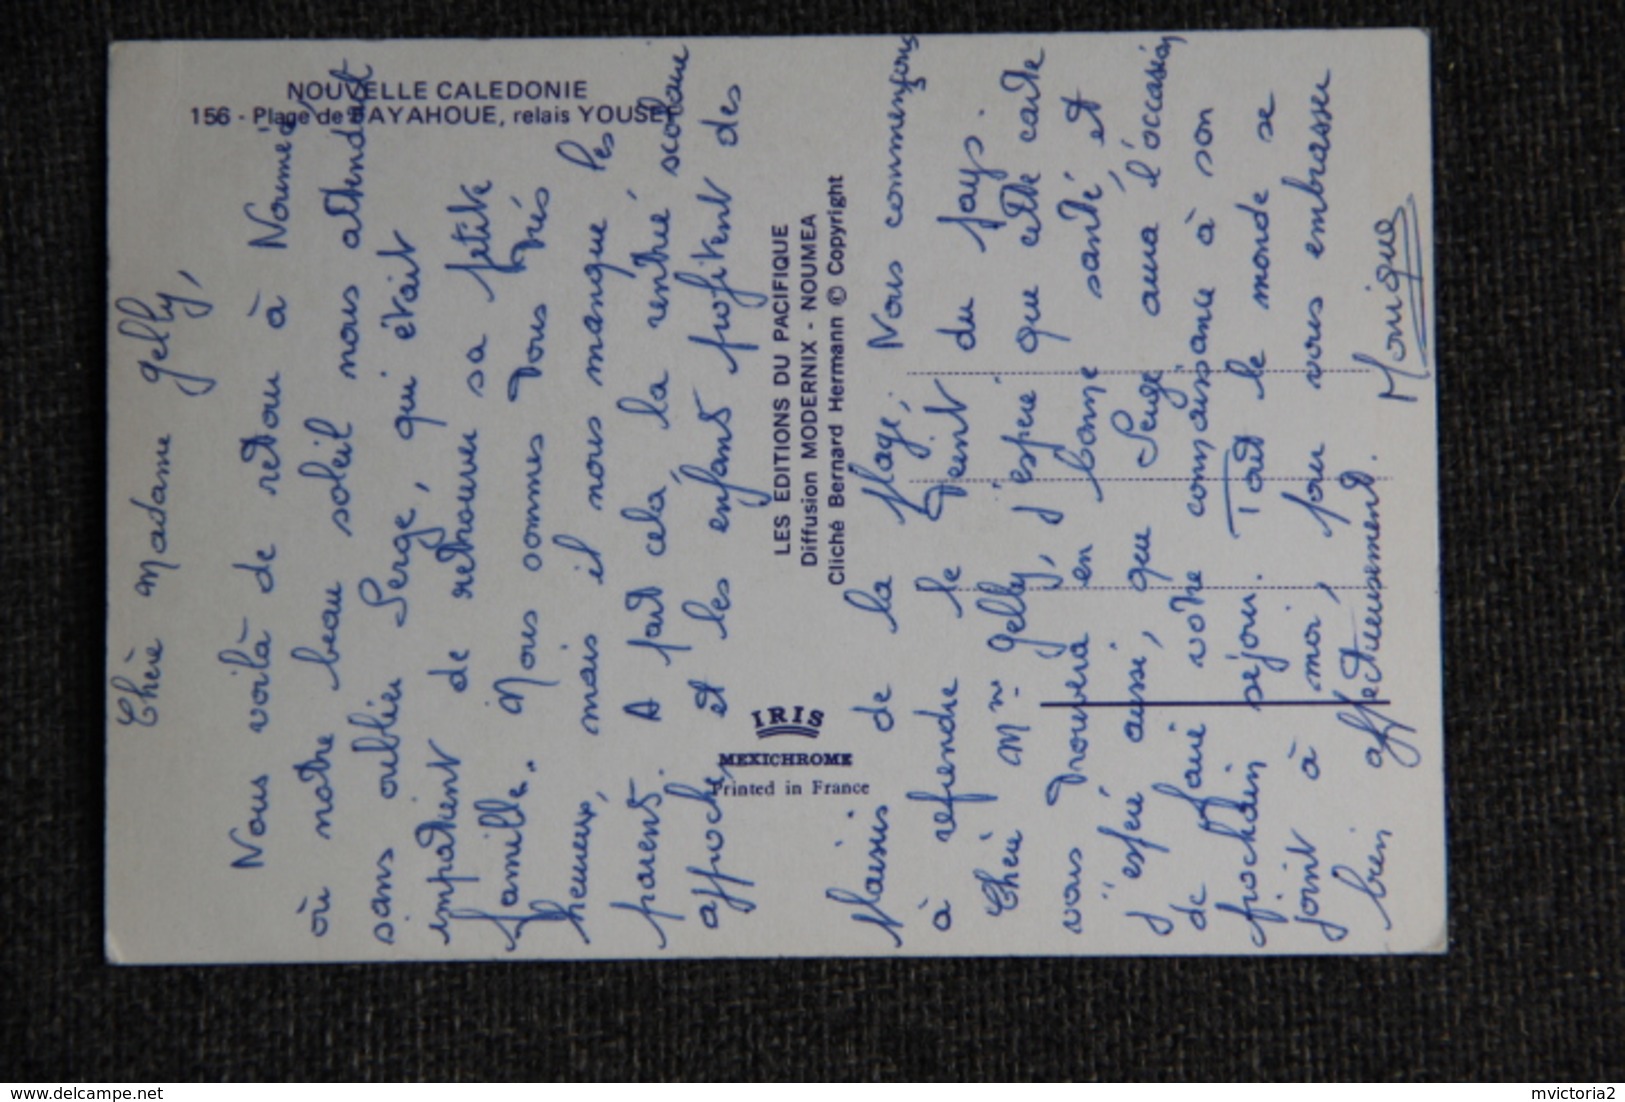 NOUVELLE CALEDONIE
156 - Plage de PAYAHOUE, relais YOUSEF
Chère Madame Gelly,
Nous voilà de retour à Nouméa
où notre beau soleil nous attendait
sans oublier Serge, qui était
impatient de retrouver sa petite
famille. Nous sommes tous très
heureux, mais il nous manque les
parents. A part cela, la rentrée scolaire
approche, et les enfants profitent des
plaisirs de la plage, Nous commençons
à reprendre le teint du pays.
Chère Mme Gelly, J'espère que cette carte
vous trouvera en bonne santé et
J'espère aussi, que Serge aura l'occasion
de faire votre connaissance à son
prochain séjour. Tout le monde se
joint à moi, pour vous embrasser
bien affectueusement.
Monique
LES EDITIONS DU PACIFIQUE
Diffusion MODERNIX - NOUMEA
Cliché Bernard Hermann © Copyright
IRIS
MEXICHROME
Printed in France
delcampe.net
mvictoria2